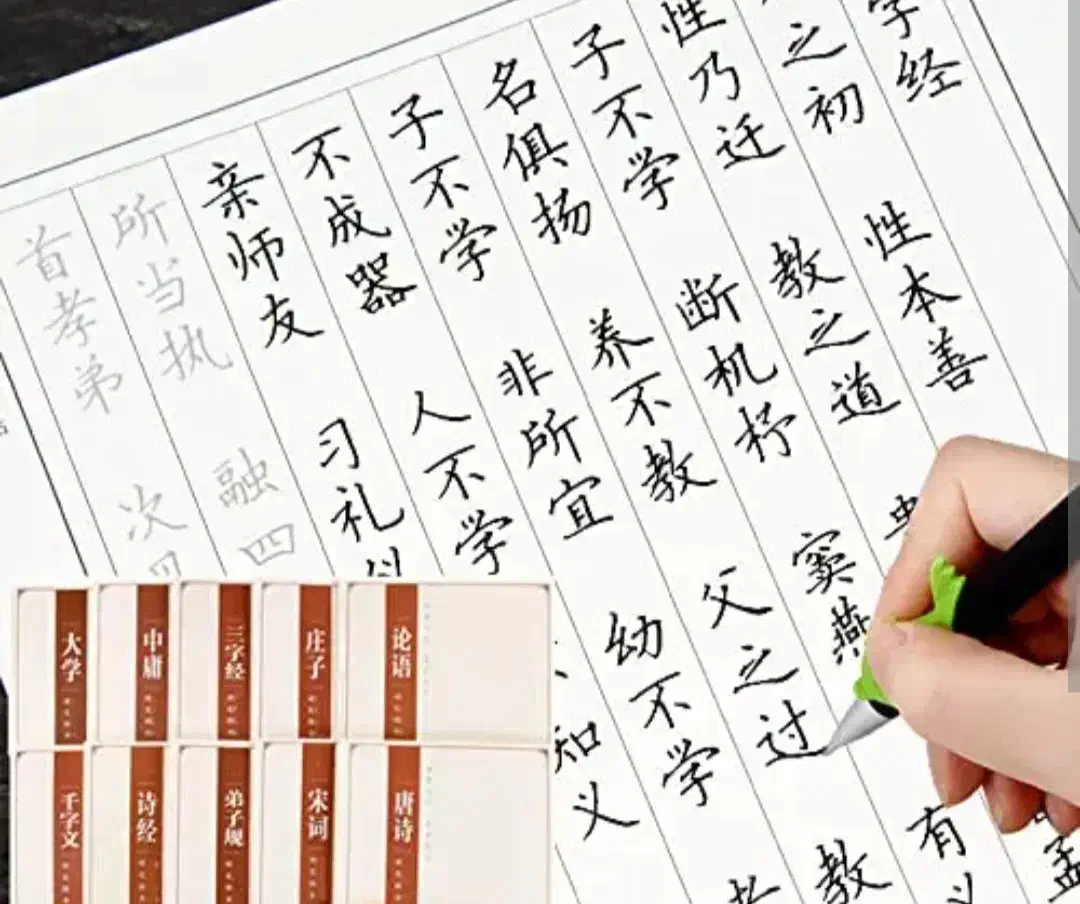 字经
之初 性本善
性乃迁 教之道 孟
子不学 断机杼 窦燕 有义
名俱扬 养不教 父之过 教
子不学 非所宜 幼不学
不成器 人不学 知义
亲师友 习礼
所当执 融四
首孝弟 次
大学
中庸
三字经
庄子
论语
千字文
诗经
弟子规
宋词
唐诗